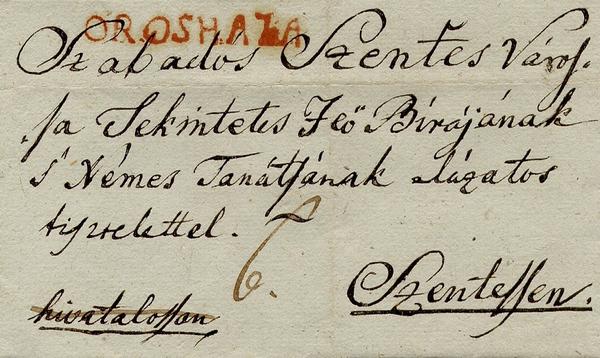 OROSHAZA
Szabados Szentes Váross-
sa Tekintetes Feő Bírájának
s' Némes Tanátsának alázatos
tisztelettel.
6.
Szentessen.
hivatalossan